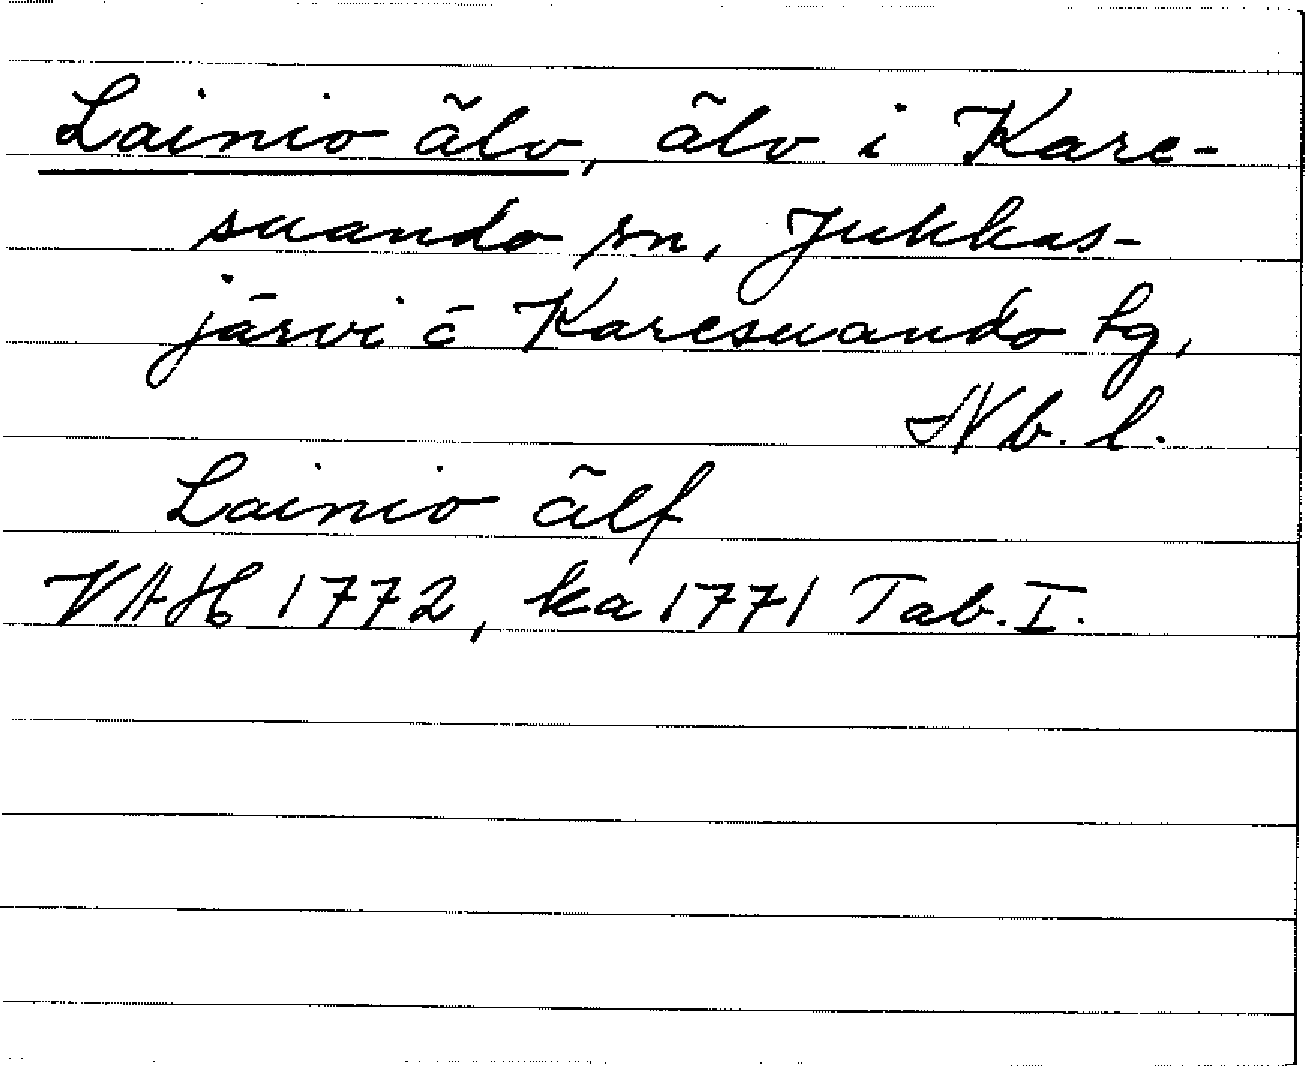 Lainio älv, älv i Kare-
suando sn, Jukkas-
järvi o Karesuando tg,
Nb. l.
Lainio älf
VAH 1772, ka 1771 Tab. I.